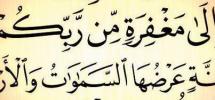 لَىٰ مَغْفِرَةٍ مِّن رَّبِّكُم
نَّةٍ عَرْضُهَا السَّمَٰوَٰتُ وَالْأَر